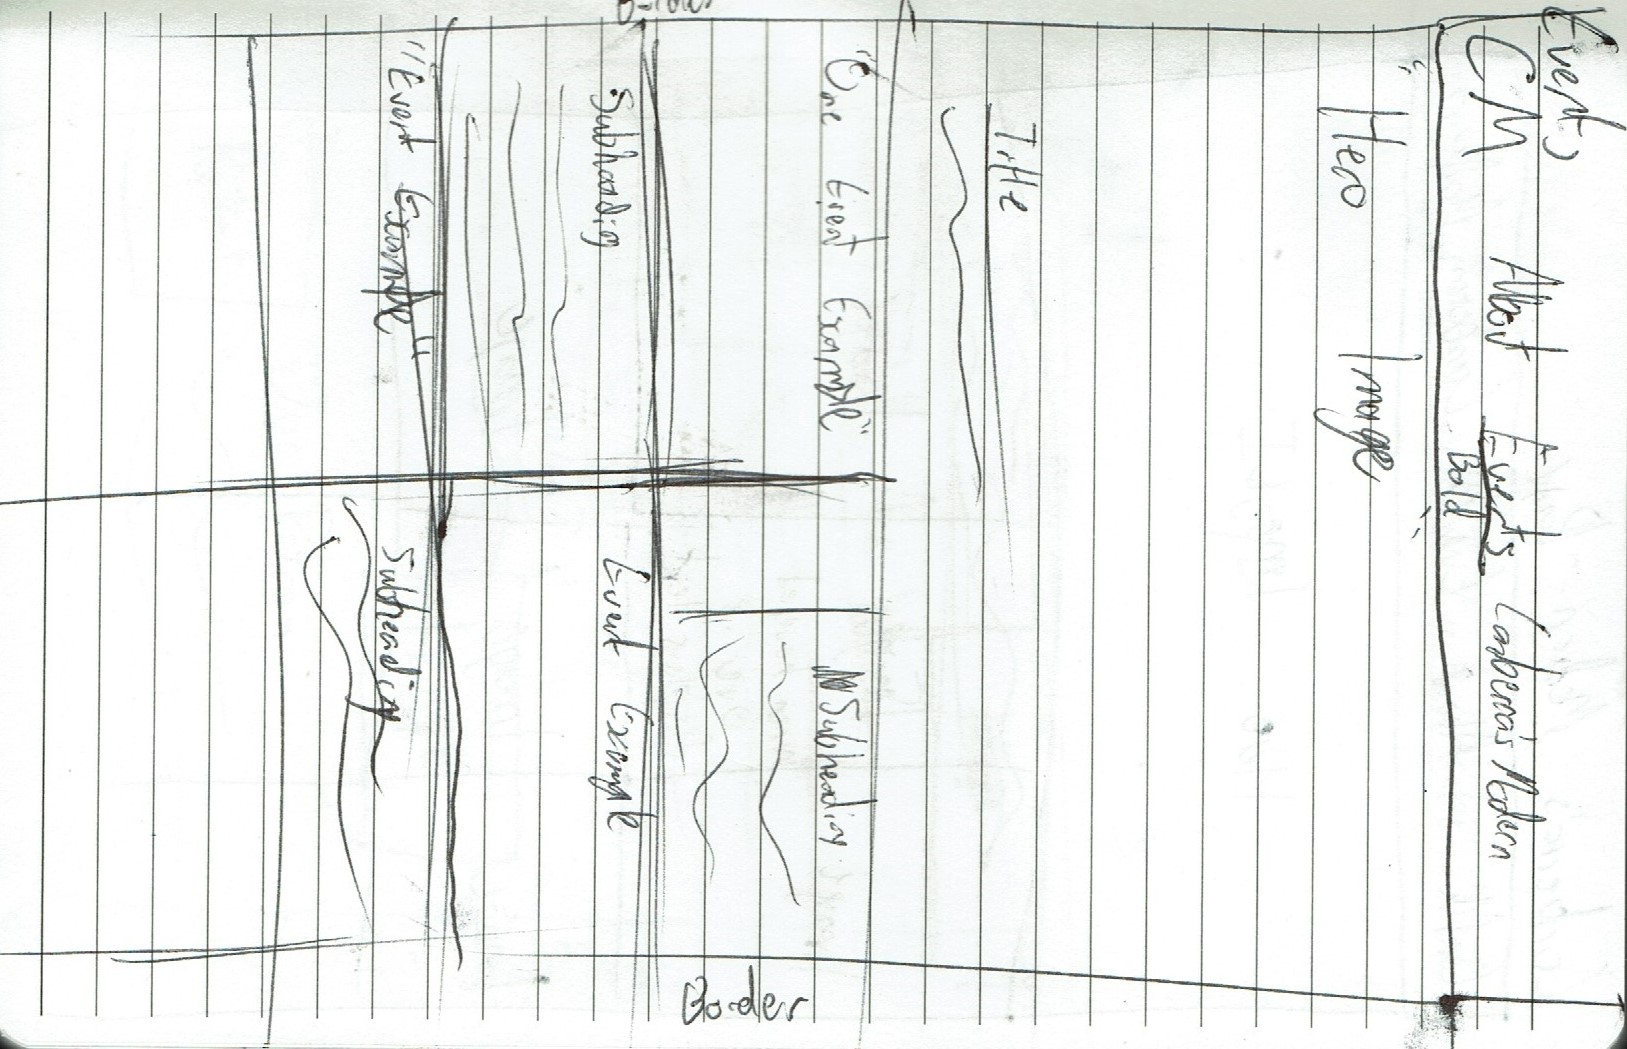 Events
CM About Events Canberra's Modern
Bold
"Hero Image"
Title
"One Event Example" Subheading
Border
Border
Subheading Event Example
"Event Example" Subheading